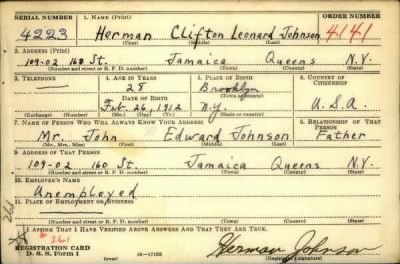 SERIAL NUMBER 1. NAME (Print) ORDER NUMBER
4223 Herman Clifton Leonard Johnson 4141
(First) (Middle) (Last)
2. ADDRESS (Print)
109-02 160 St. Jamaica Queens N.Y.
(Number and street or R. F. D. number) (Town) (County) (State)
3. TELEPHONE 4. AGE IN YEARS 5. PLACE OF BIRTH 6. COUNTRY OF CITIZENSHIP
28 Brooklyn
DATE OF BIRTH (Town or county)
Feb. 26, 1912 N.Y. U.S.A.
(Exchange) (Number) (Mo.) (Day) (Yr.) (State or country)
7. NAME OF PERSON WHO WILL ALWAYS KNOW YOUR ADDRESS 8. RELATIONSHIP OF THAT PERSON
Mr. John Edward Johnson Father
(Mr., Mrs., Miss) (First) (Middle) (Last)
9. ADDRESS OF THAT PERSON
109-02 160 St. Jamaica Queens N.Y.
(Number and street or R. F. D. number) (Town) (County) (State)
10. EMPLOYER'S NAME
Unemployed
11. PLACE OF EMPLOYMENT OR BUSINESS
(Number and street or R. F. D. number) (Town) (County) (State)
I AFFIRM THAT I HAVE VERIFIED ABOVE ANSWERS AND THAT THEY ARE TRUE.
REGISTRATION CARD
D. S. S. Form 1 (over) Herman Johnson